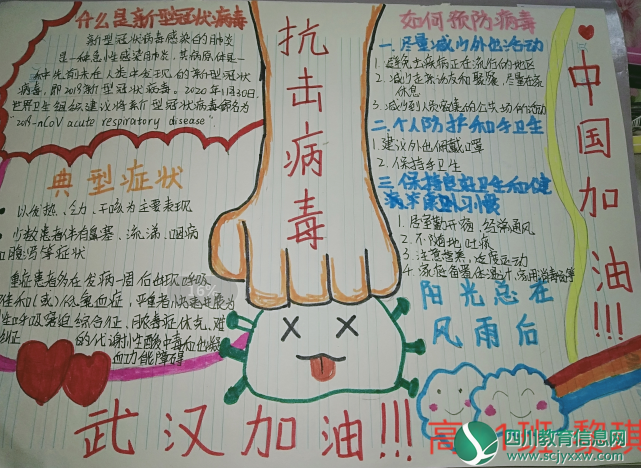 什么是新型冠状病毒
新型冠状病毒感染的肺炎
是一种急性感染肺炎，其病原体是一
种先前未在人类中发现的新型冠状
病毒，即2019新冠状病毒。2020年1月30日，
世界卫生组织建议将新型冠状病毒命名为
"2019-nCoV acute respiratory disease"
典型症状
以发热、乏力、干咳为主要表现
少数患者伴有鼻塞、流涕、咽痛
腹泻等症状
重症患者多在发病一周后出现呼吸
低氧血症，严重者
代谢性酸中毒和出凝
血功能障碍
抗击病毒
如何预防病毒
一、尽量减少外出活动
1.避免去疾病正在流行的地区
2.减少走亲访友和聚餐，尽量在家
休息
3.减少到人员密集的公共场所活动
二、个人防护和手卫生
1.建议外出佩戴口罩
2.保持手卫生
三、保持良好卫生和健
康
习惯
1.居室勤开窗，经常通风
2.不随地吐痰
3.注意营养，适度运动
4.家庭备置体温计、家用消毒
阳光总在
风雨后
中国加油!!!
武汉加油!!!
高
1班黎琪
四川教育信息网
www.scjyxxw.com